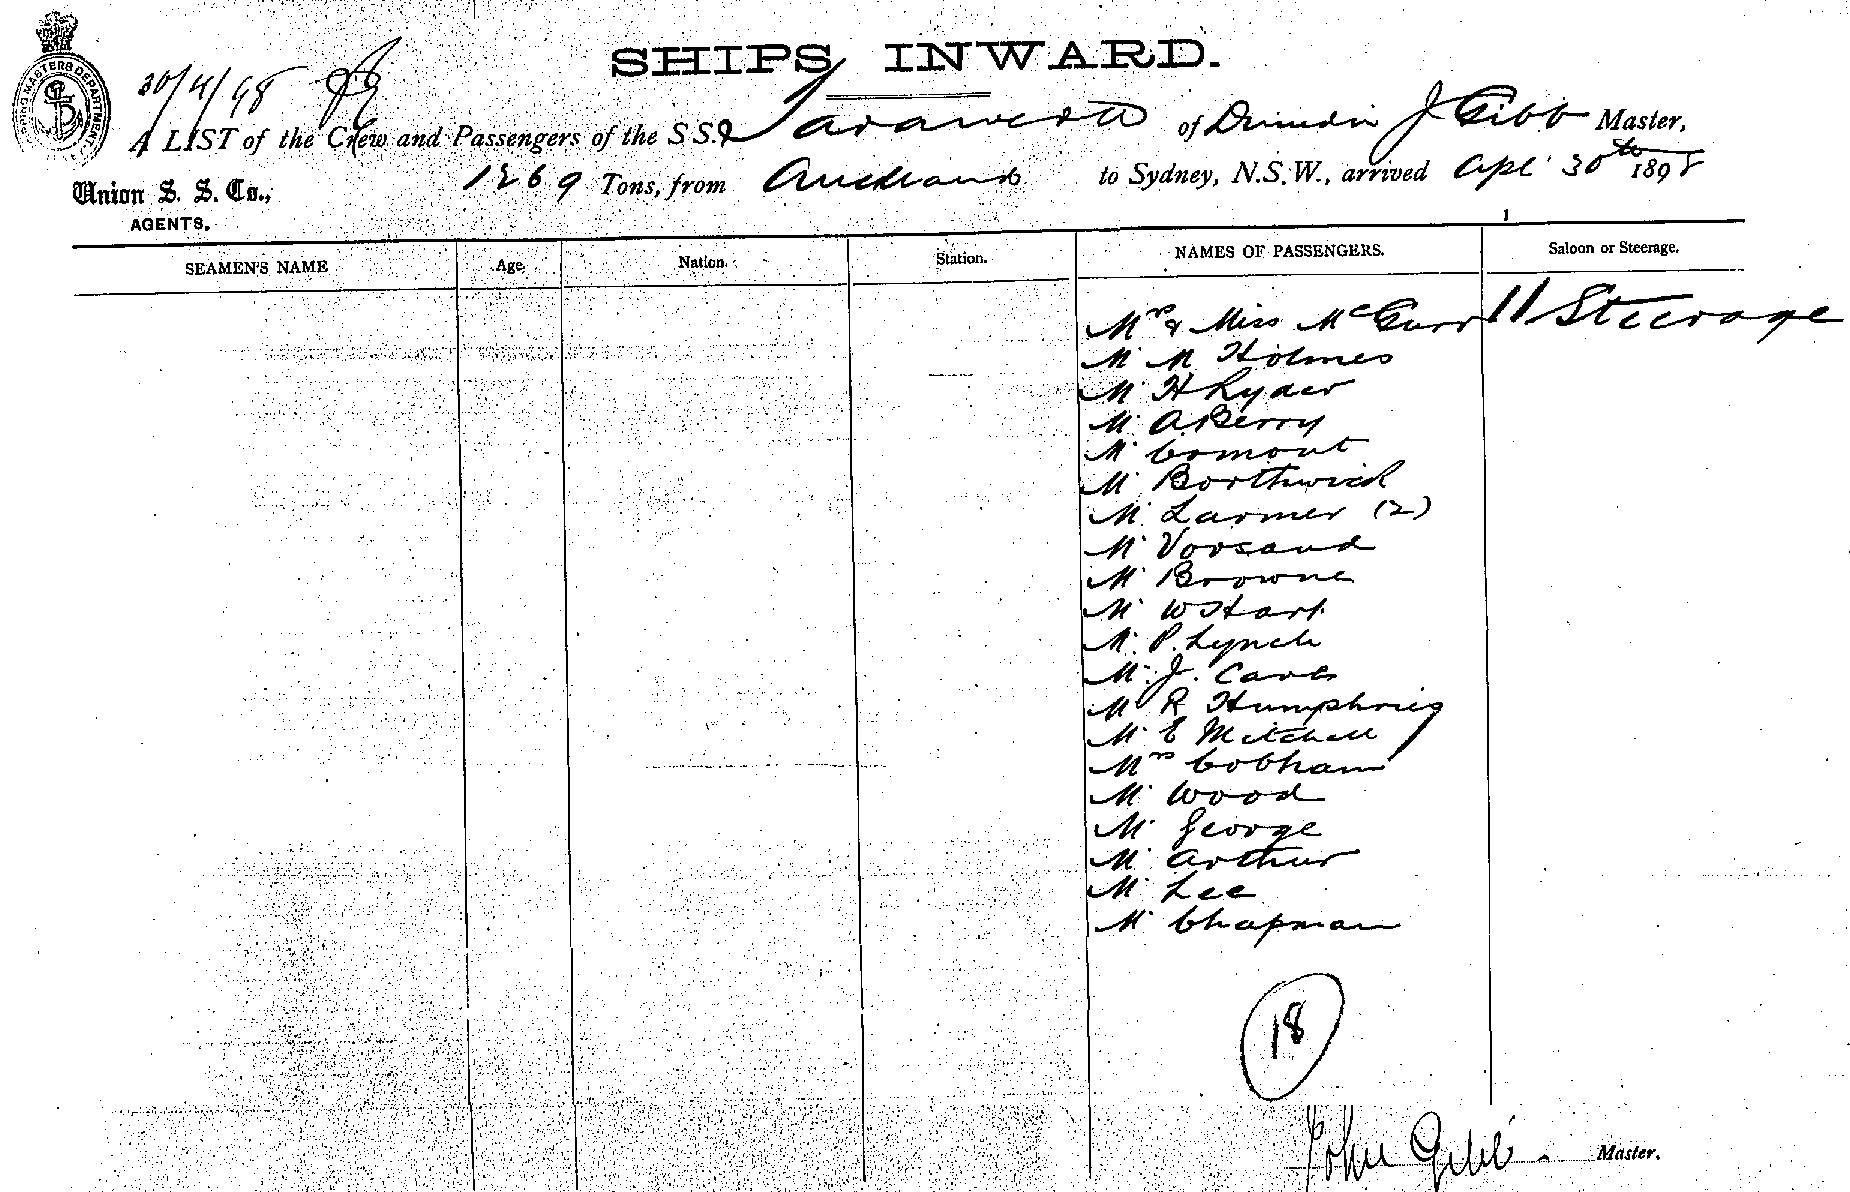 SHIPS INWARD.
30/4/98
SHIPPING MASTERS DEPARTMENT
A LIST of the Crew and Passengers of the S.S. Tarawera of Dunedin J Gibb Master,
Union S. S. Co.,
AGENTS.
1269 Tons, from Auckland to Sydney, N.S.W., arrived Apl 30th 1898
SEAMEN'S NAME Age Nation Station. NAMES OF PASSENGERS. Saloon or Steerage.
Mrs & Miss McGurr 11 Steerage
Mr M Holmes
Mr H Ryder
Mr A. Berry
Mr Comont
Mr Borthwick
Mr Larmer (2)
Mr
Mr Browne
Mr W Hart
Mr P. Lynch
Mr J. Cave
Mr R Humphries
Mr E Mitchell
Mrs Cobham
Mr Wood
Mr George
Mr Arthur
Mr Lee
Mr Chapman
18
John Gibb. Master.